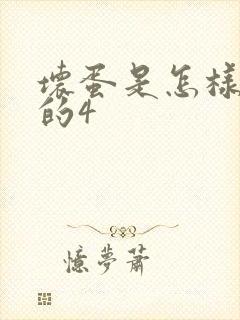 壞蛋是怎樣
的4
憶夢蕭